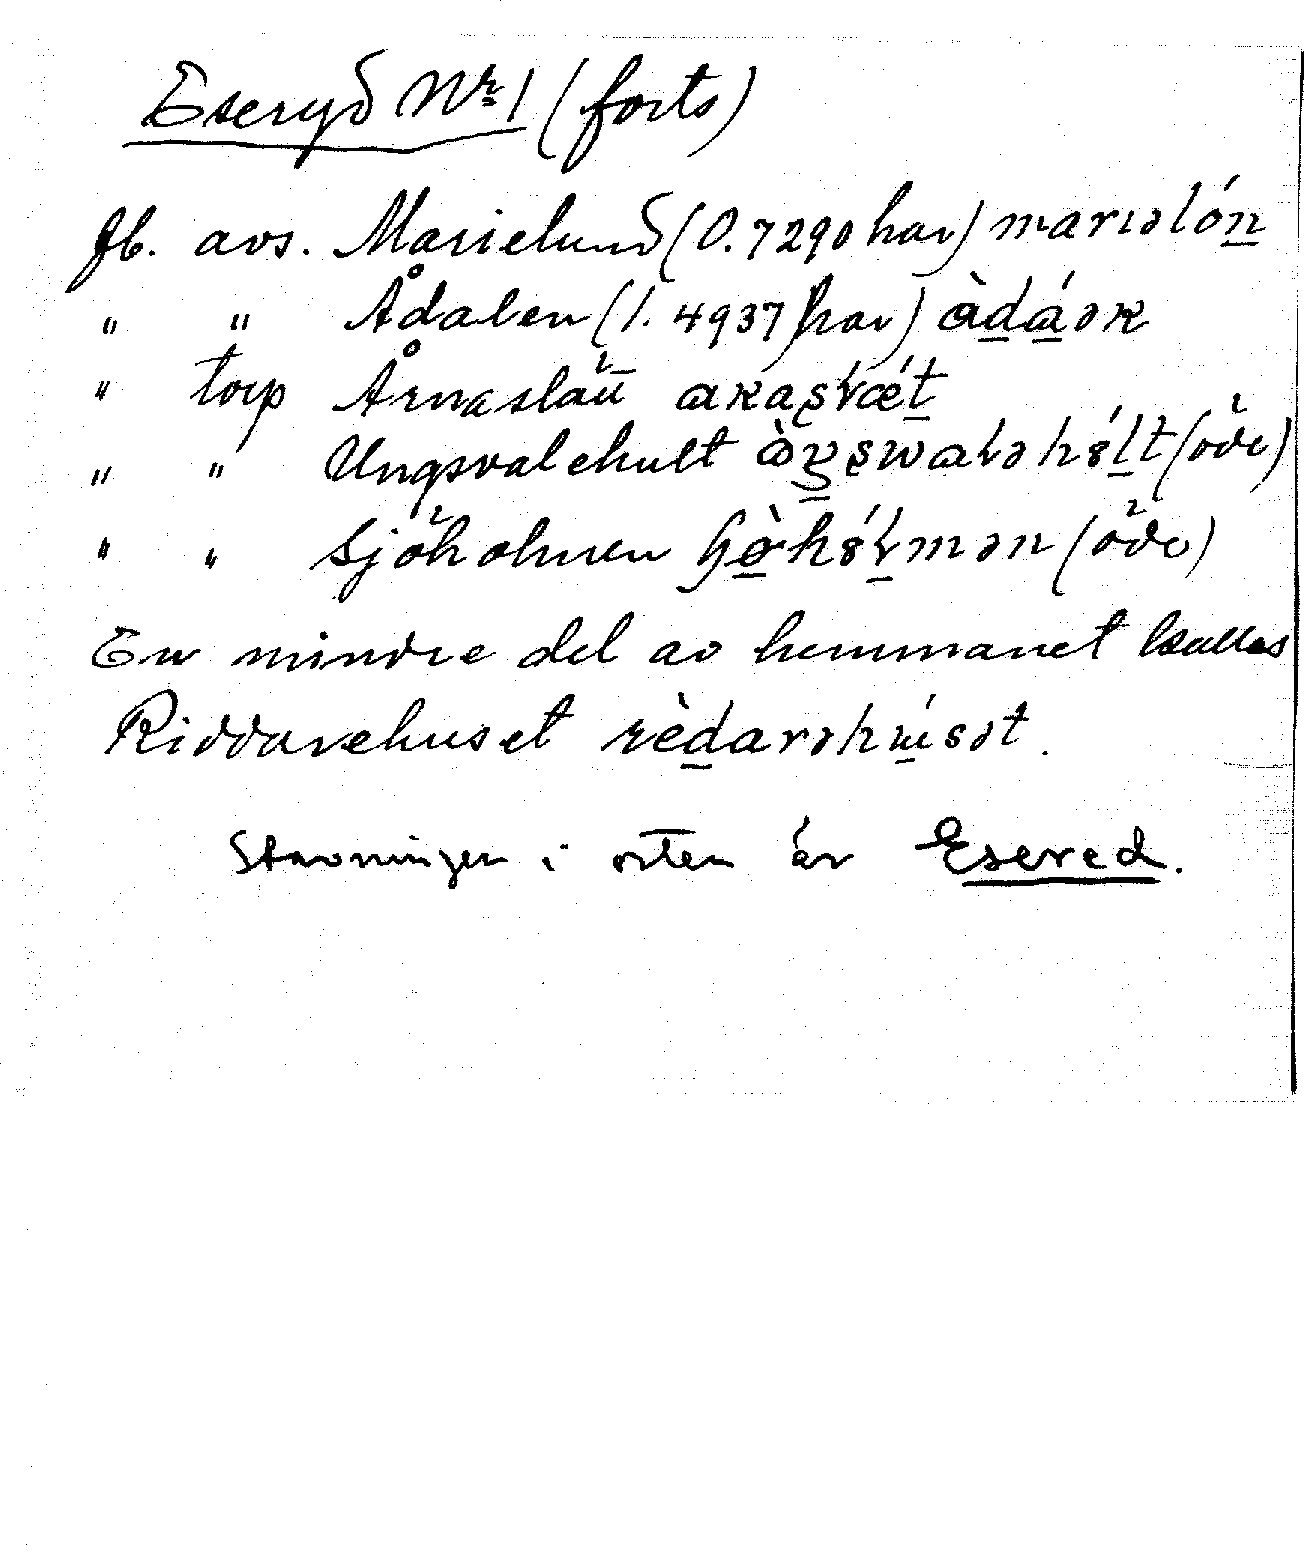 Eseryd Nr 1 (forts)
fb. avs. Marielund (0.7290 har) mariəlón
" " Ådalen (1.4937 har) àdáəʀ
" torp Årnaslätt
" " Ungsvalehult (öde)
" " Sjöholmen (öde)
En mindre del av hemmanet kallas
Riddarehuset rèdarəhúsət.
Stavningen i orten är Esered.